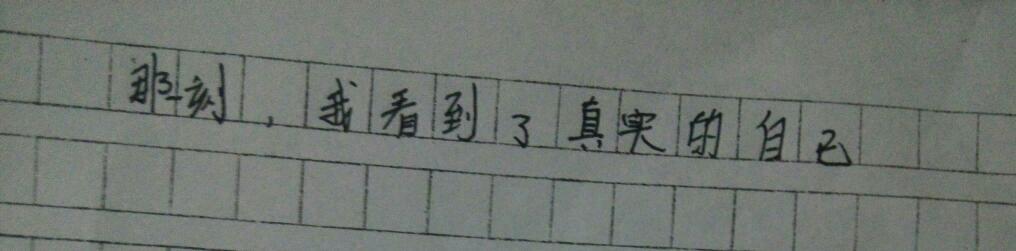 那一刻，我看到了真实的自己